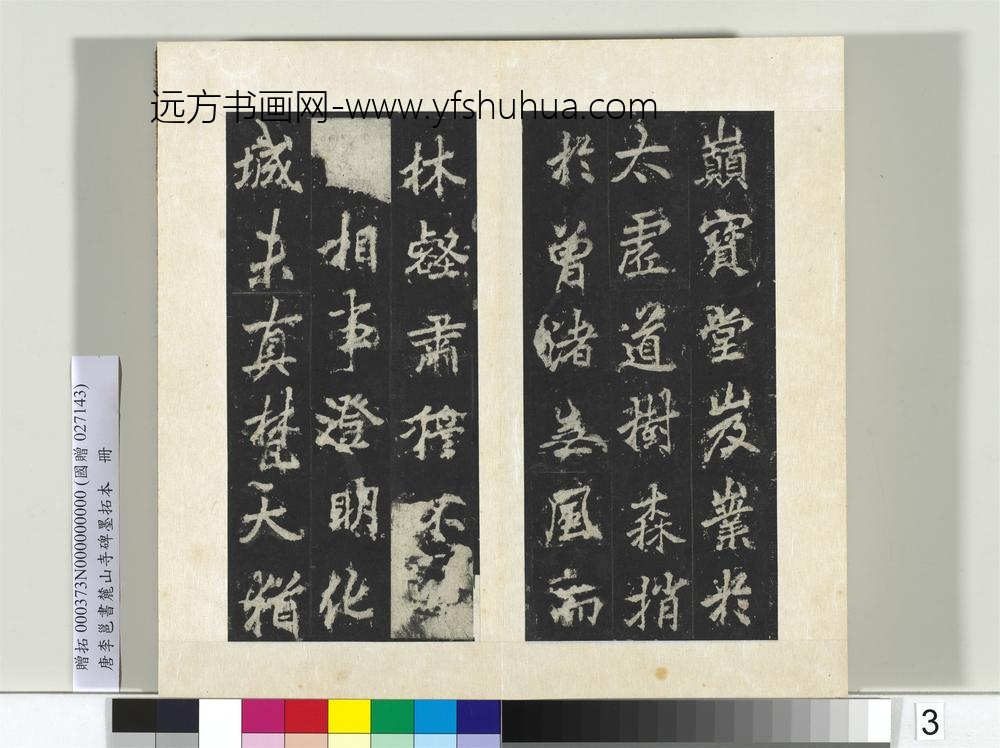 远方书画网-www.yfshuhua.com
巔寶堂岌業於
太虛道樹森捎
於曾渚無風而
林壑肅穆不
相事澄明化
城未真梵天猶
贈拓 000373N000000000 (國贈 027143)
唐李邕書麓山寺碑墨拓本 冊
3